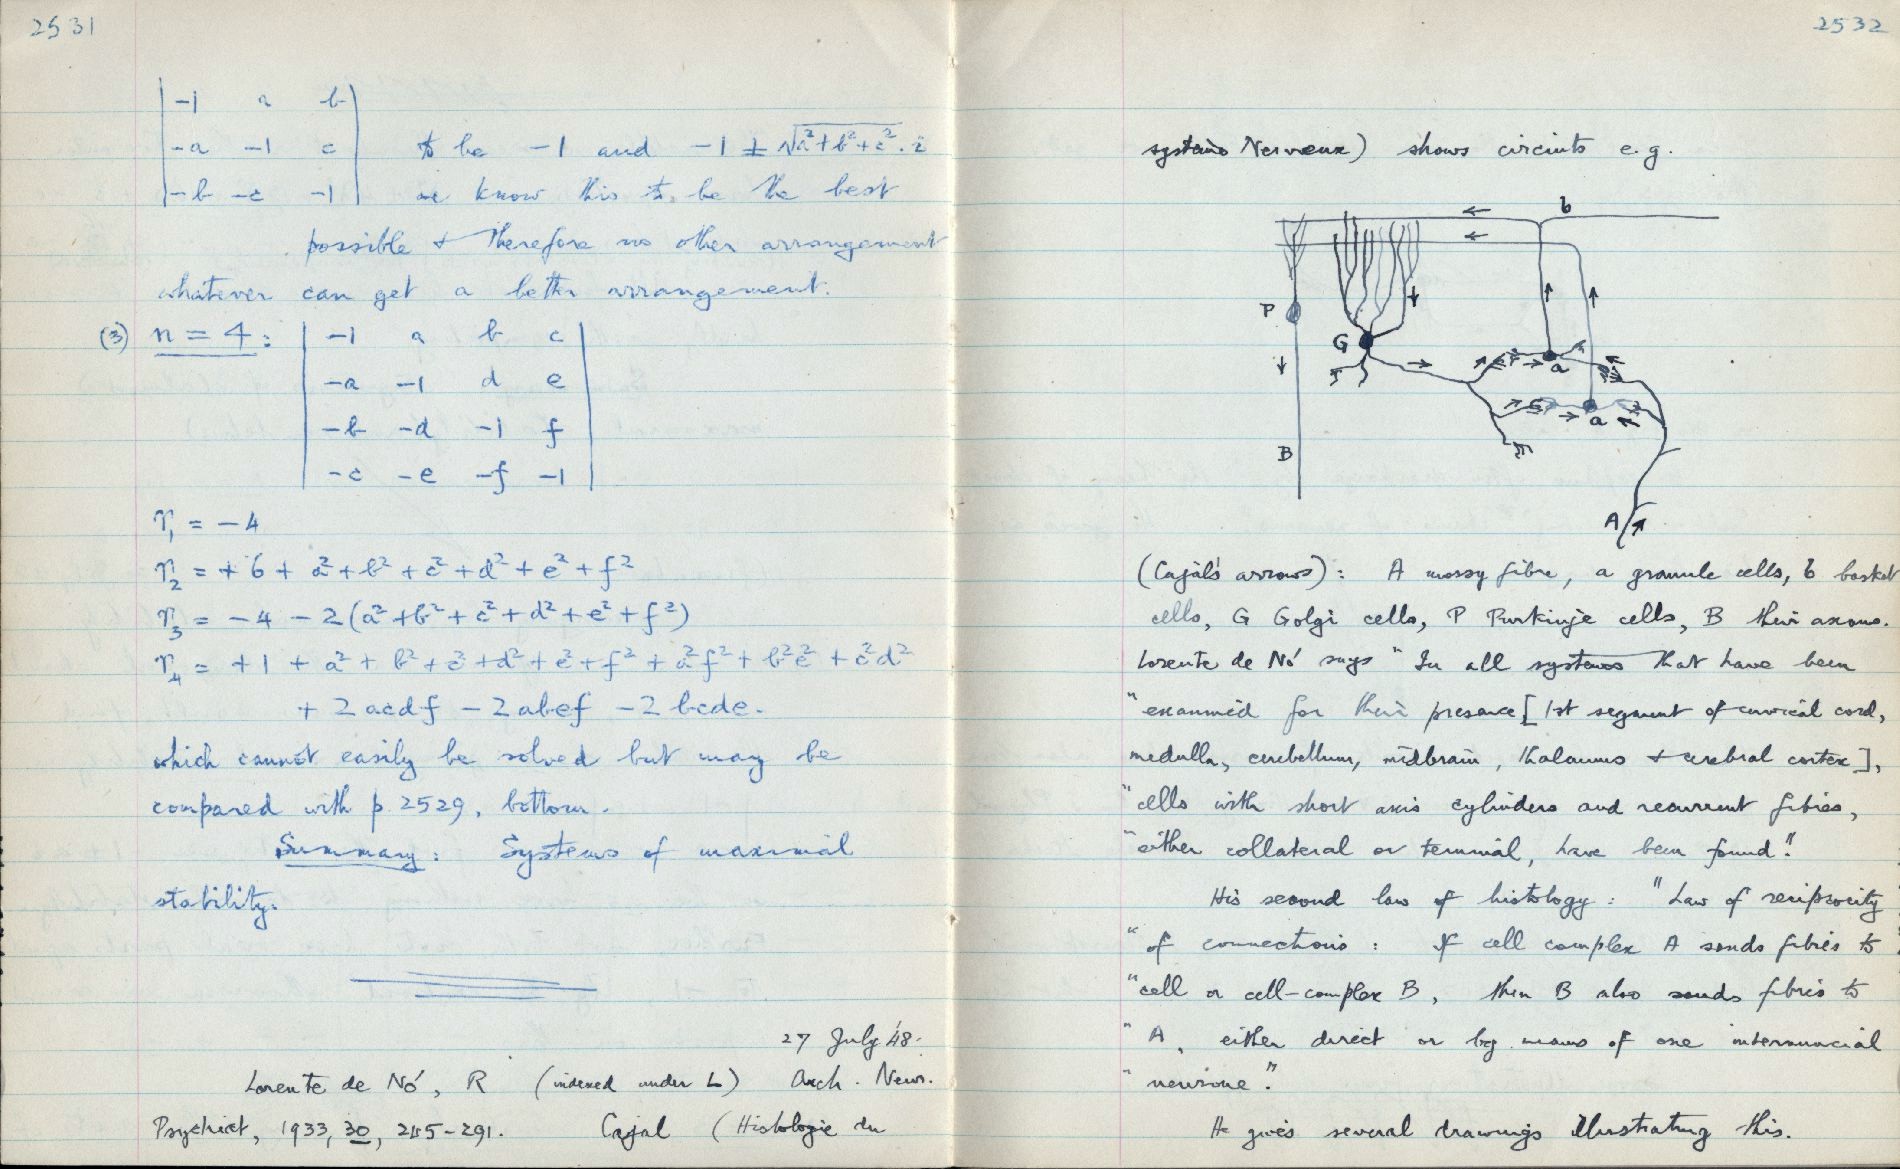 2531
| -1 a b |
| -a -1 c | to be -1 and -1 ± √(a²+b²+c²).i
| -b -c -1 | we know this to be the best
possible & therefore no other arrangement
whatever can get a better arrangement.
(3) n = 4 : | -1 a b c |
| -a -1 d e |
| -b -d -1 f |
| -c -e -f -1 |
r₁ = -4
r₂ = +6 + a² + b² + c² + d² + e² + f²
r₃ = -4 - 2(a² + b² + c² + d² + e² + f²)
r₄ = +1 + a² + b² + c² + d² + e² + f² + a²f² + b²e² + c²d²
+ 2acdf - 2abef - 2bcde.
which cannot easily be solved but may be
compared with p. 2529, bottom.
Summary: Systems of maximal
stability.
27 July '48.
Lorente de Nó, R (indexed under L) Arch. Neur.
Psychiat, 1933, 30, 245-291. Cajal (Histologie du
2532
système Nerveux) shows circuits e.g.
b
P
G
a
a
B
A
(Cajal's arrows): A mossy fibre, a granule cells, b basket
cells, G Golgi cells, P Purkinje cells, B their axons.
Lorente de Nó says "In all systems that have been
"examined for their presence [1st segment of cervical cord,
medulla, cerebellum, midbrain, thalamus & cerebral cortex],
"cells with short axis cylinders and recurrent fibres,
"either collateral or terminal, have been found".
His second law of histology: "Law of reciprocity
"of connections: If cell complex A sends fibres to
"cell or cell-complex B, then B also sends fibres to
"A, either direct or by means of one internuncial
"neurone".
He gives several drawings illustrating this.